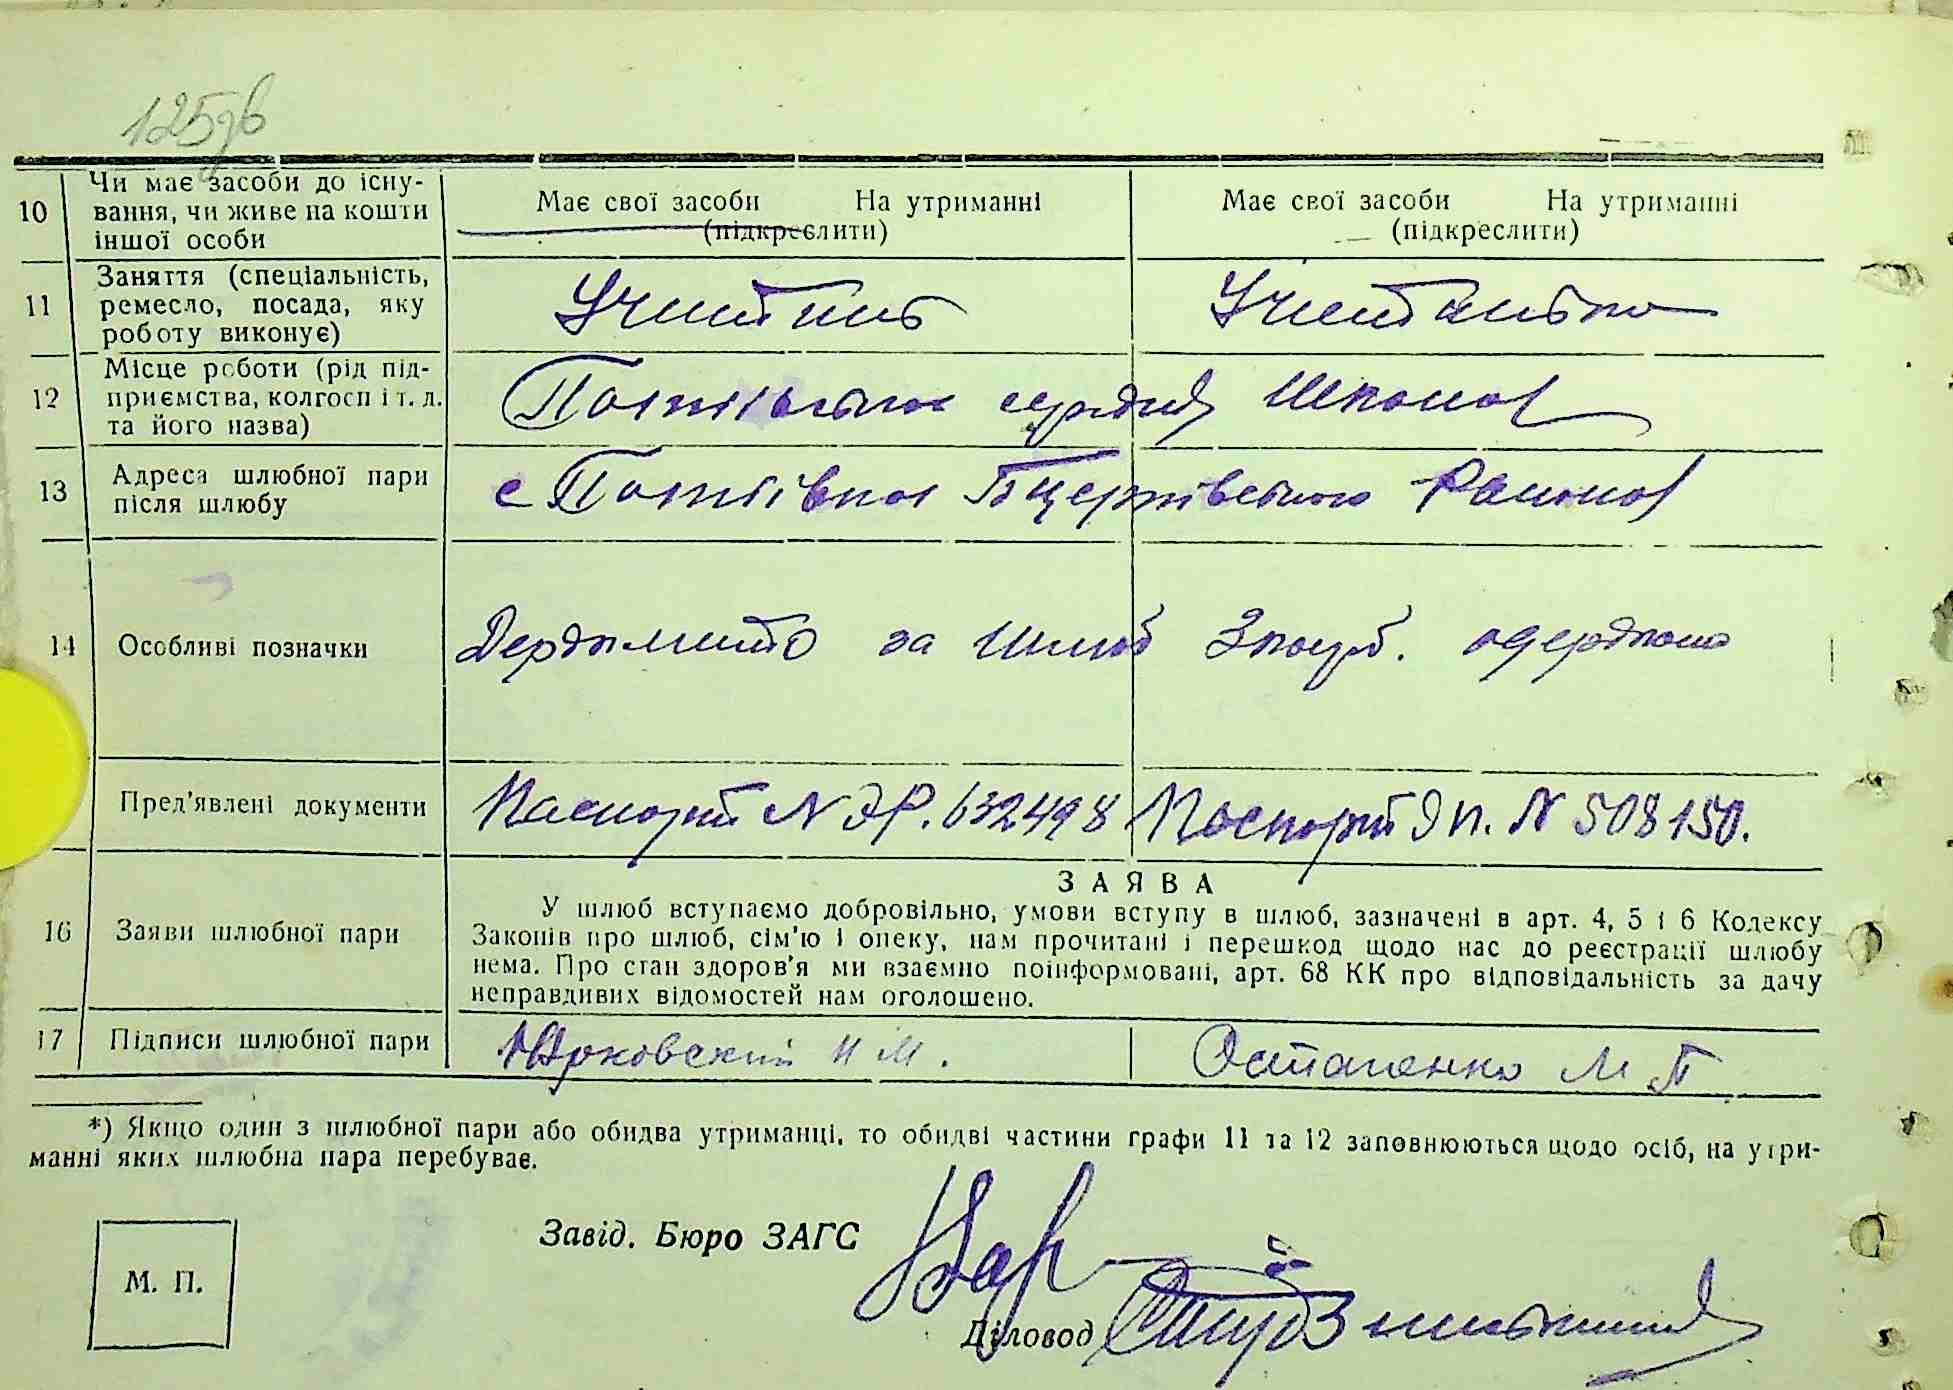 10 Чи має засоби до існу-
вання, чи живе на кошти
іншої особи
Має свої засоби На утриманні
(підкреслити)
Має свої засоби На утриманні
(підкреслити)
11 Заняття (спеціальність,
ремесло, посада, яку
роботу виконує)
Учитель
Учителька
12 Місце роботи (рід під-
приємства, колгосп і т. д.
та його назва)
середня школа
13 Адреса шлюбної пари
після шлюбу
с Потіївка Бцерківського Району
14 Особливі позначки
Держмито за шлюб 3 карб. одержано
Пред'явлені документи
Паспорт N ЭР. 632498
Паспорт Эп. N 508150.
16 Заяви шлюбної пари
ЗАЯВА
У шлюб вступаємо добровільно, умови вступу в шлюб, зазначені в арт. 4, 5 і 6 Кодексу
Законів про шлюб, сім'ю і опеку, нам прочитані і перешкод щодо нас до реєстрації шлюбу
нема. Про стан здоров'я ми взаємно поінформовані, арт. 68 КК про відповідальність за дачу
неправдивих відомостей нам оголошено.
17 Підписи шлюбної пари
Юрковский И М.
Остапенко М П
*) Якщо один з шлюбної пари або обидва утриманці, то обидві частини графи 11 та 12 заповнюються щодо осіб, на утри-
манні яких шлюбна пара перебуває.
Завід. Бюро ЗАГС
М. П.
Діловод